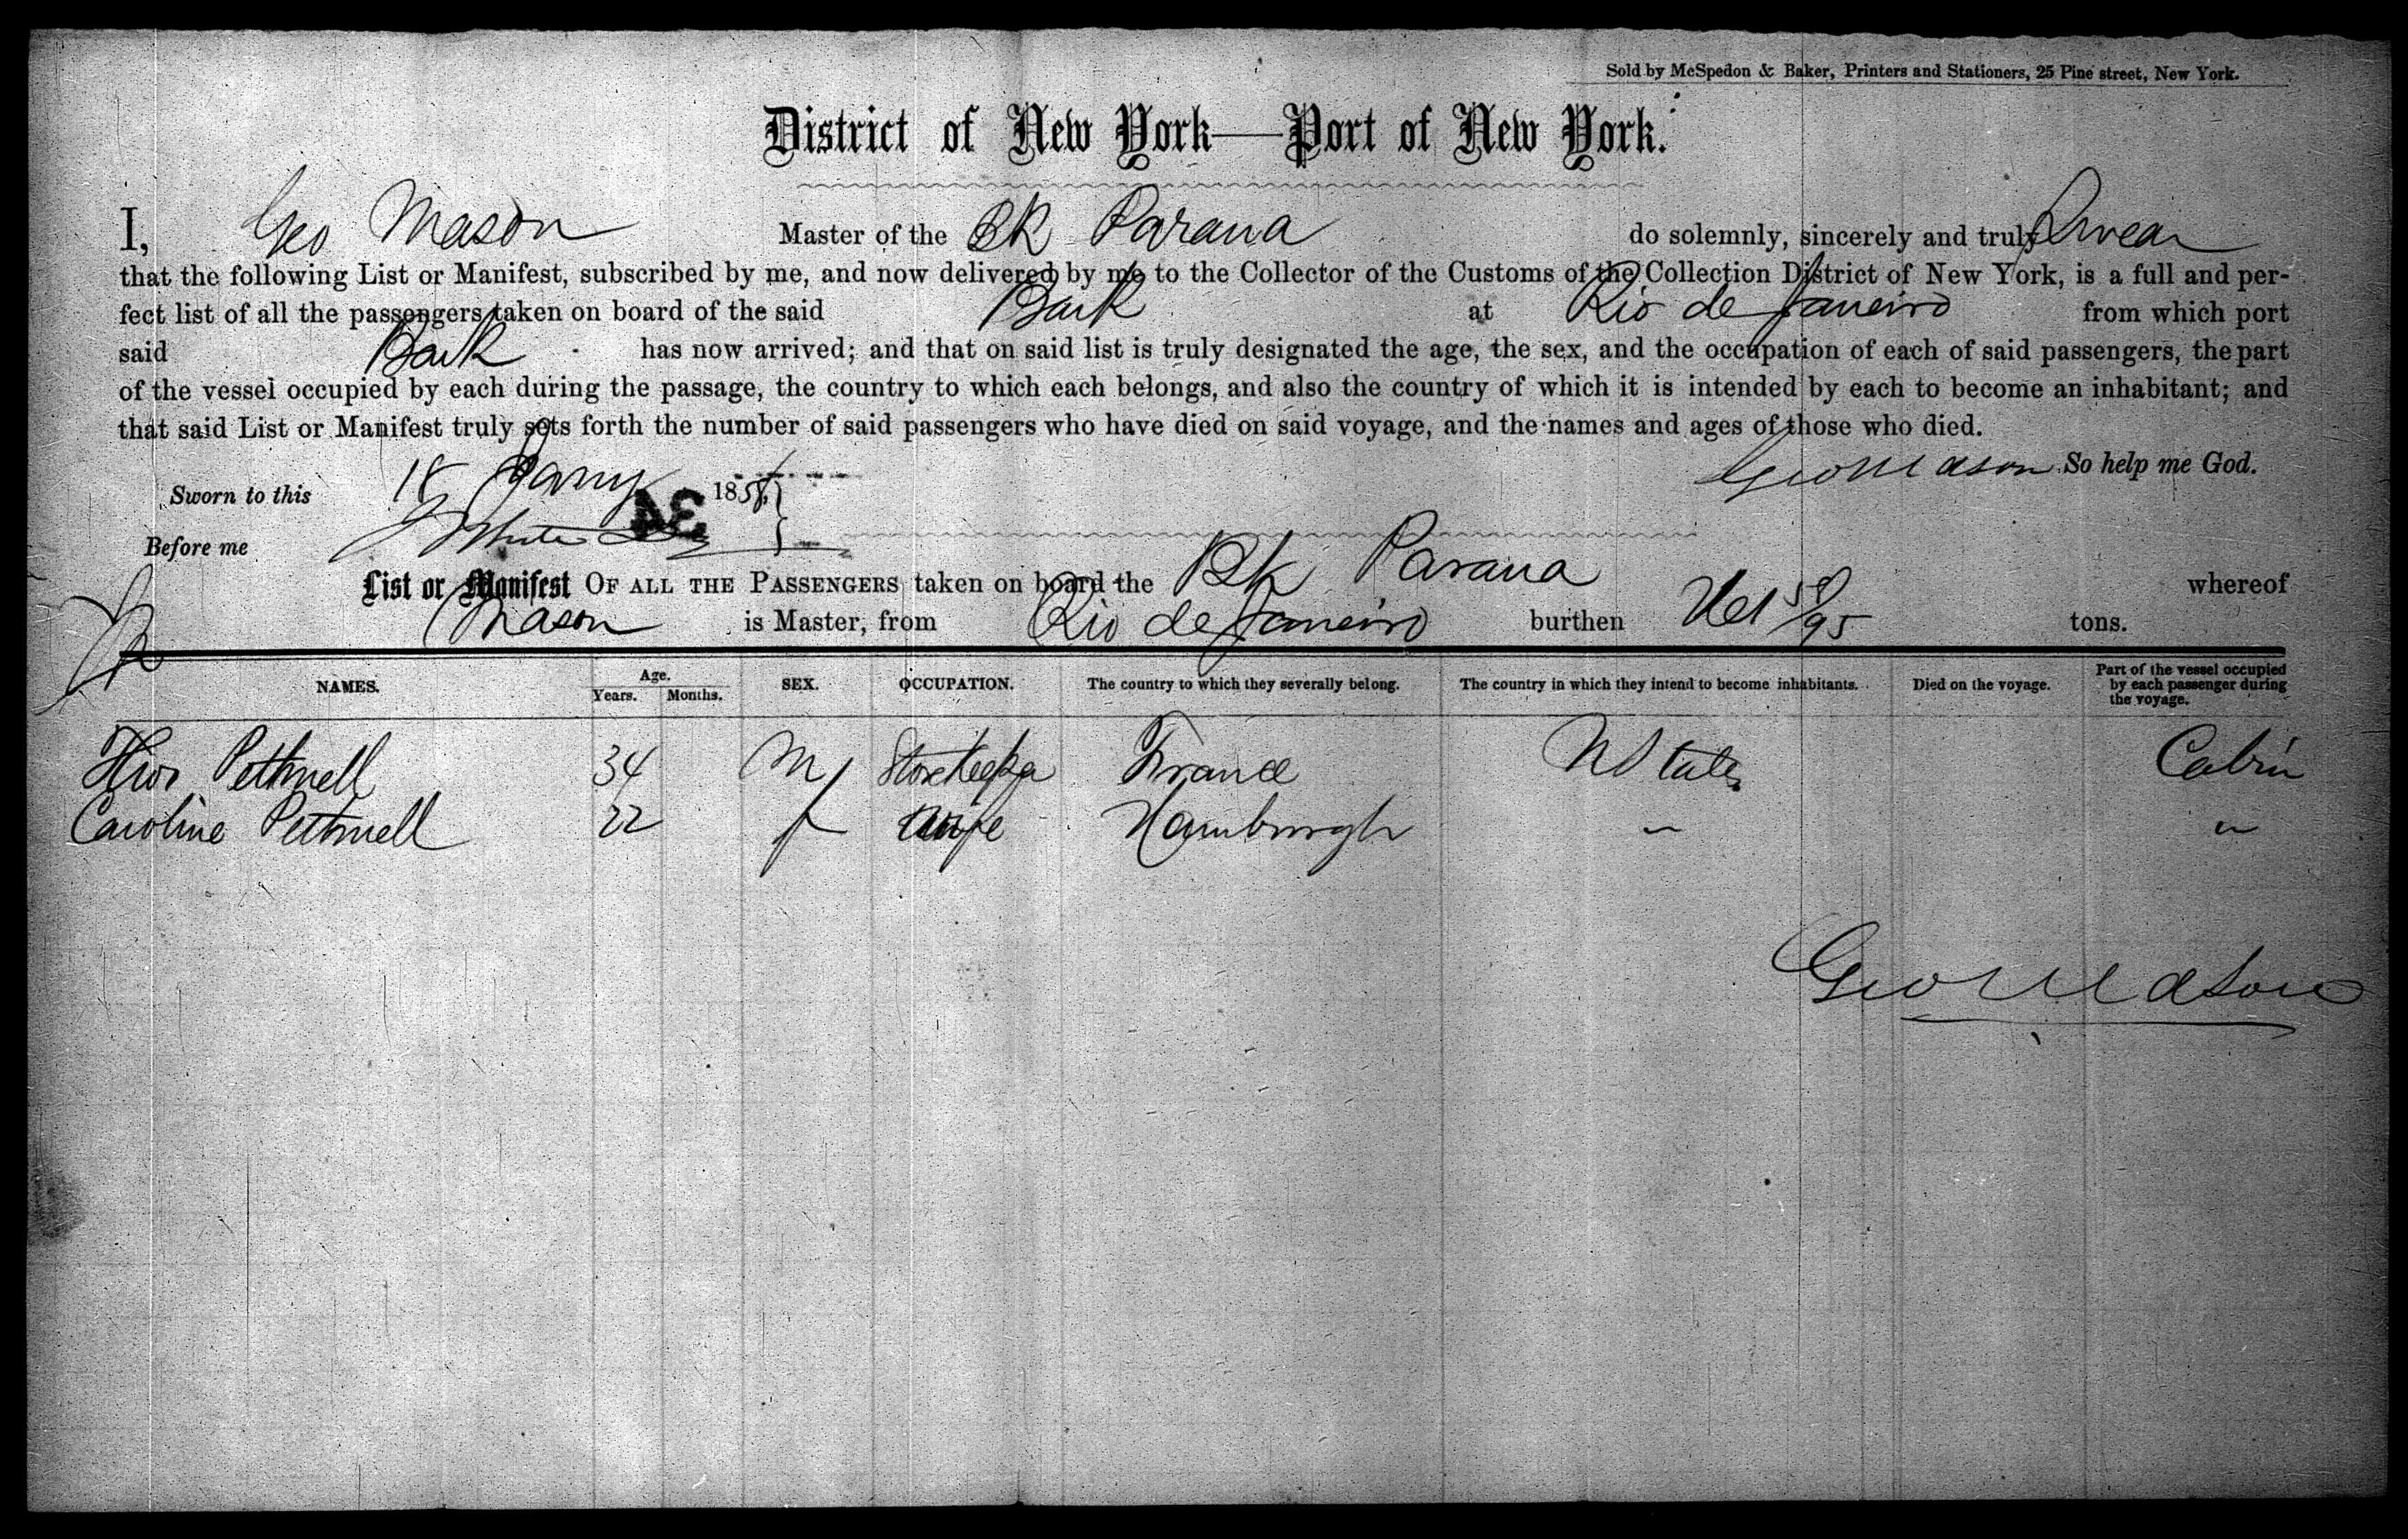 Sold by McSpedon & Baker, Printers and Stationers, 25 Pine street, New York.
District of New York—Port of New York.
I, Geo Mason Master of the Bk Parana do solemnly, sincerely and truly Swear
that the following List or Manifest, subscribed by me, and now delivered by me to the Collector of the Customs of the Collection District of New York, is a full and per-
fect list of all the passengers taken on board of the said Bark at Rio de Janeiro from which port
said Bark has now arrived; and that on said list is truly designated the age, the sex, and the occupation of each of said passengers, the part
of the vessel occupied by each during the passage, the country to which each belongs, and also the country of which it is intended by each to become an inhabitant; and
that said List or Manifest truly sets forth the number of said passengers who have died on said voyage, and the names and ages of those who died.
Geo Mason So help me God.
Sworn to this 18 Jany 185
34
Before me
List or Manifest OF ALL THE PASSENGERS taken on board the Bk Parana whereof
Mason is Master, from Rio de Janeiro burthen tons.
NAMES. Age. Years. Months. SEX. OCCUPATION. The country to which they severally belong. The country in which they intend to become inhabitants. Died on the voyage. Part of the vessel occupied by each passenger during the voyage.
34 M Storekeeper France U States Cabin
Caroline 22 f Wife Hamburgh " "
Geo Mason